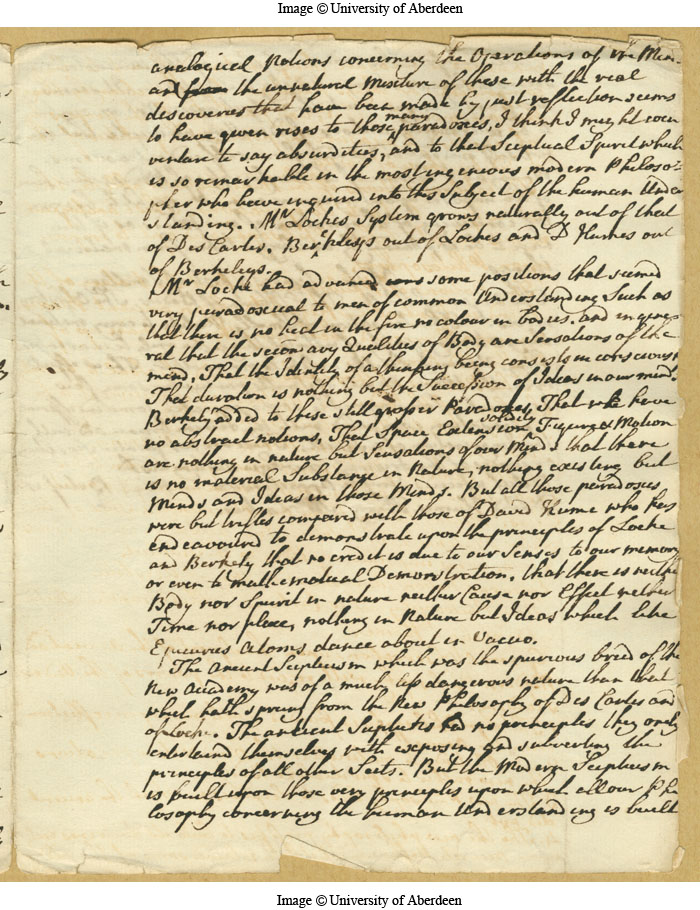 Image © University of Aberdeen
analogical Notions concerning the Operations of the Min-
and from the unnatural mixture of these with the real
discoveries that have been made by just reflection seems
to have given rises to those many paradoxes, I think I might even
venture to say absurdities, and to that Sceptical Spirit which
is so remarkable in the most ingenious modern Philoso-
pher who have inquired into this Subject of the human Under
standing. Mr Lockes System grows naturally out of that
of Des Cartes. Berkleys out of Lockes and D Humes out
of Berkeleys.
Mr Locke had advanced some positions that seemed
very paradoxical to men of common Understanding Such as
that there is no heat in the fire no colour in bodies. and in gene
ral that the secondary Qualities of Body are Sensations of the
mind, That the Identity of a thinking being consists in consciousn
That duration is nothing but the Succession of Ideas in our mind.
Berkely added to these still grosser Paradoxes, That we have
no abstract notions, That Space Extension solidity Figure & Motion
are nothing in nature but Sensations of our Minds that there
is no material Substance in Nature, nothing existing but
Minds and Ideas in those Minds. But all those paradoxes
were but trifles compared with those of David Hume who has
endeavoured to demonstrate upon the principles of Locke
and Berkely that no credit is due to our Senses to our memory
or even to mathematical Demonstration. that there is neithe
Body nor Spirit in nature neither Cause nor Effect neither
Time nor place, nothing in Nature but Ideas which like
Epicures Atoms dance about in Vacuo.
The Ancient Scepticism which was the spurious breed of the
New Academy was of a much less dangerous nature than that
which hath sprung from the New Philosophy of Des Cartes and
of Locke. The ancient Scepticks had no principles they only
entertaind themselves with exposing and subverting the
principles of all other Sects. But the Modern Scepticism
is built upon those very principles upon which all our Phi
losophy concerning the human Understanding is built
Image © University of Aberdeen